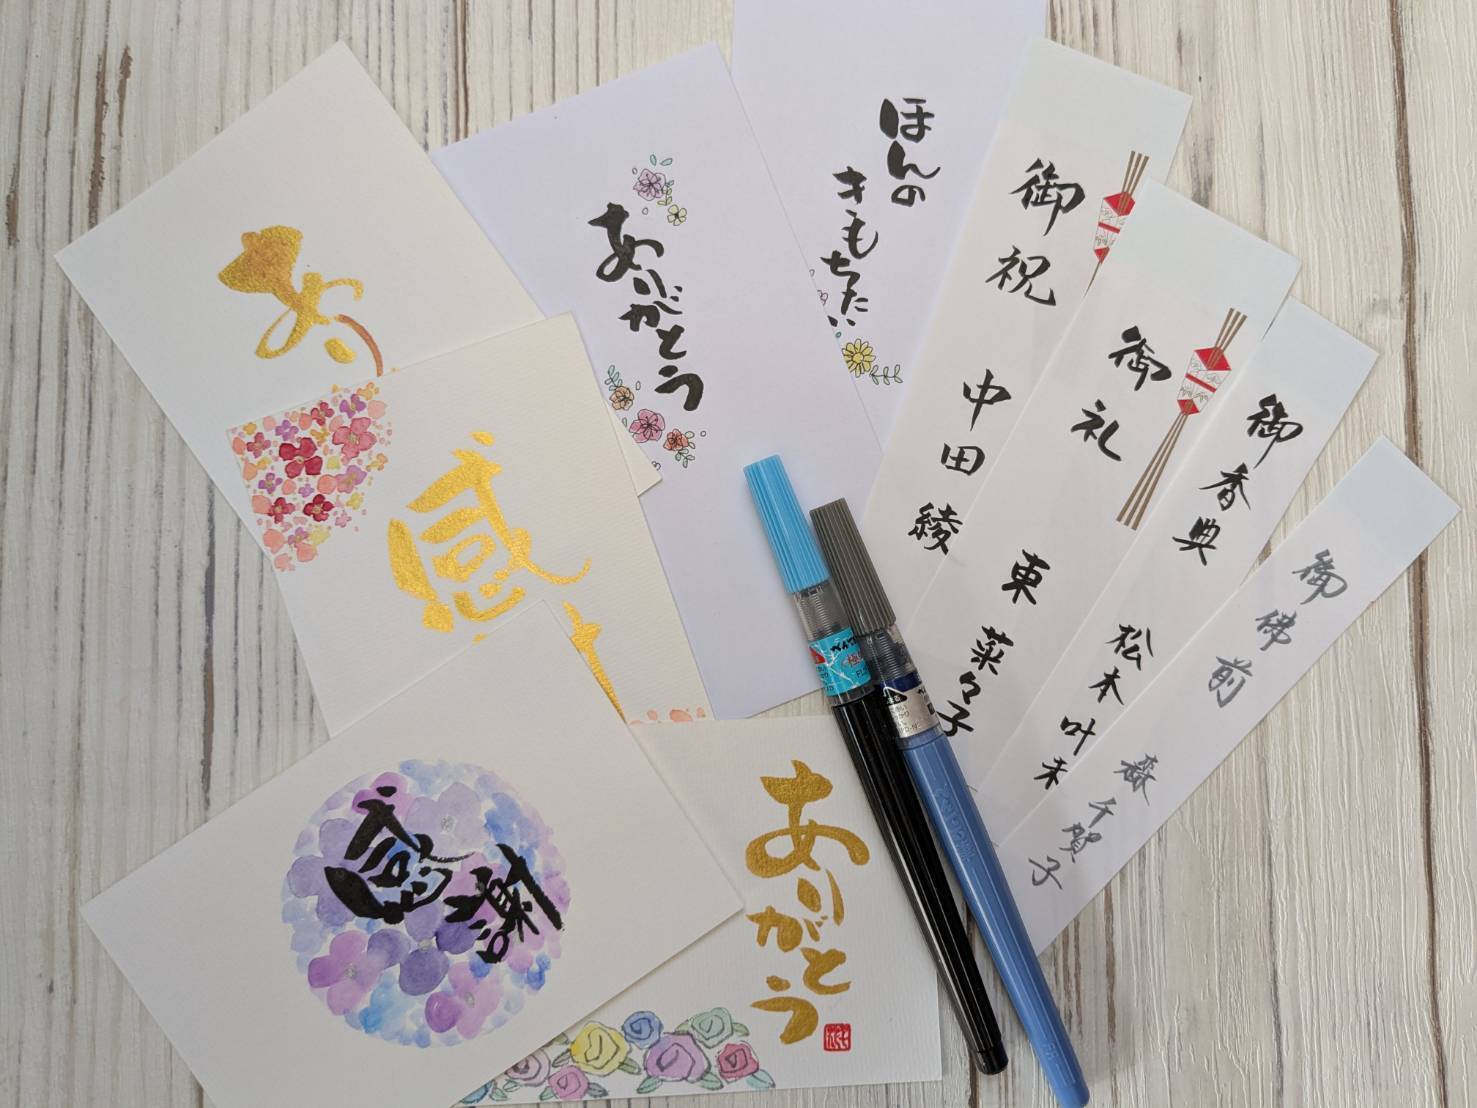 あ
感
ありがとう
ほんの
きもちだい
御祝
中田綾
御礼
東菜々子
御香典
松本叶禾
御佛前
森千賀子
感謝
ありがとう